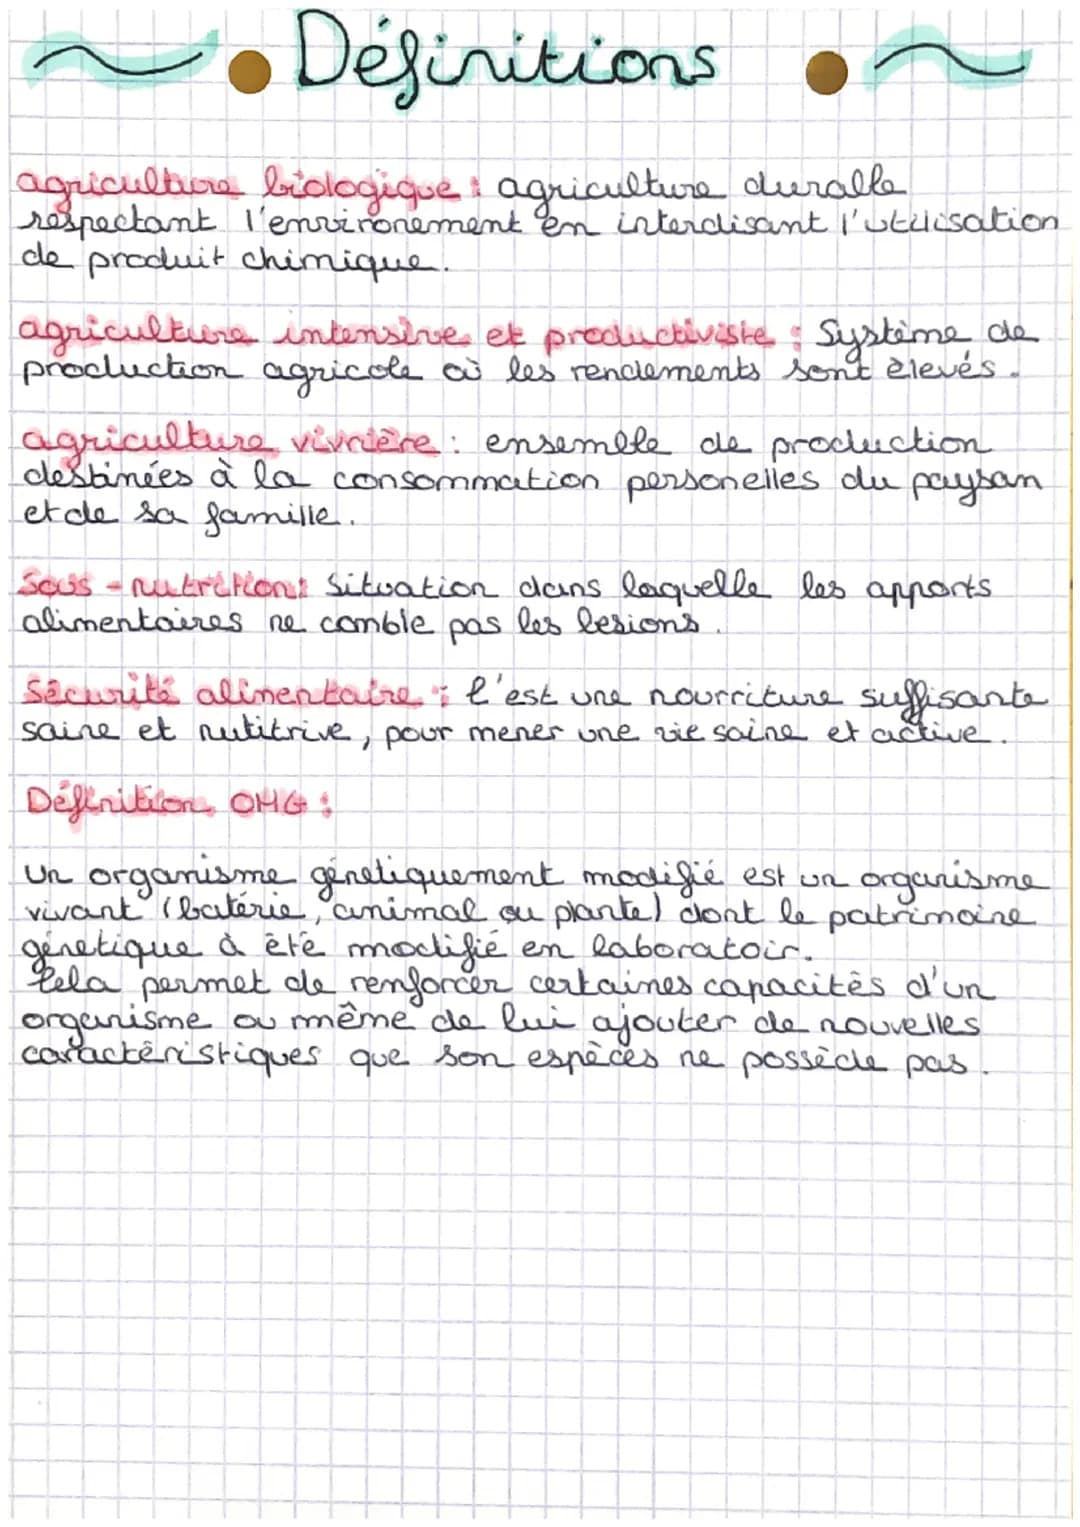 Définitions
agriculture biologique : agriculture durable
respectant l'environement en interdisant l'utilisation
de produit chimique.
agriculture intensive et productiviste : Système de
production agricole où les rendements sont èlevés.
agriculture vivrière : ensemble de production
destinées à la consommation personelles du paysan
et de sa famille.
Sous-nutrition : Situation dans laquelle les apports
alimentaires ne comble pas les besions.
Sécurité alimentaire : C'est une nourriture suffisante
saine et nutitrive, pour mener une vie saine et active.
Définition OMG :
Un organisme génetiquement modifié est un organisme
vivant (batérie, animal ou plante) dont le patrimoine
génetique à été modifié en laboratoir.
Cela permet de renforcer certaines capacités d'un
organisme ou même de lui ajouter de nouvelles
caractéristiques que son espèces ne possède pas.